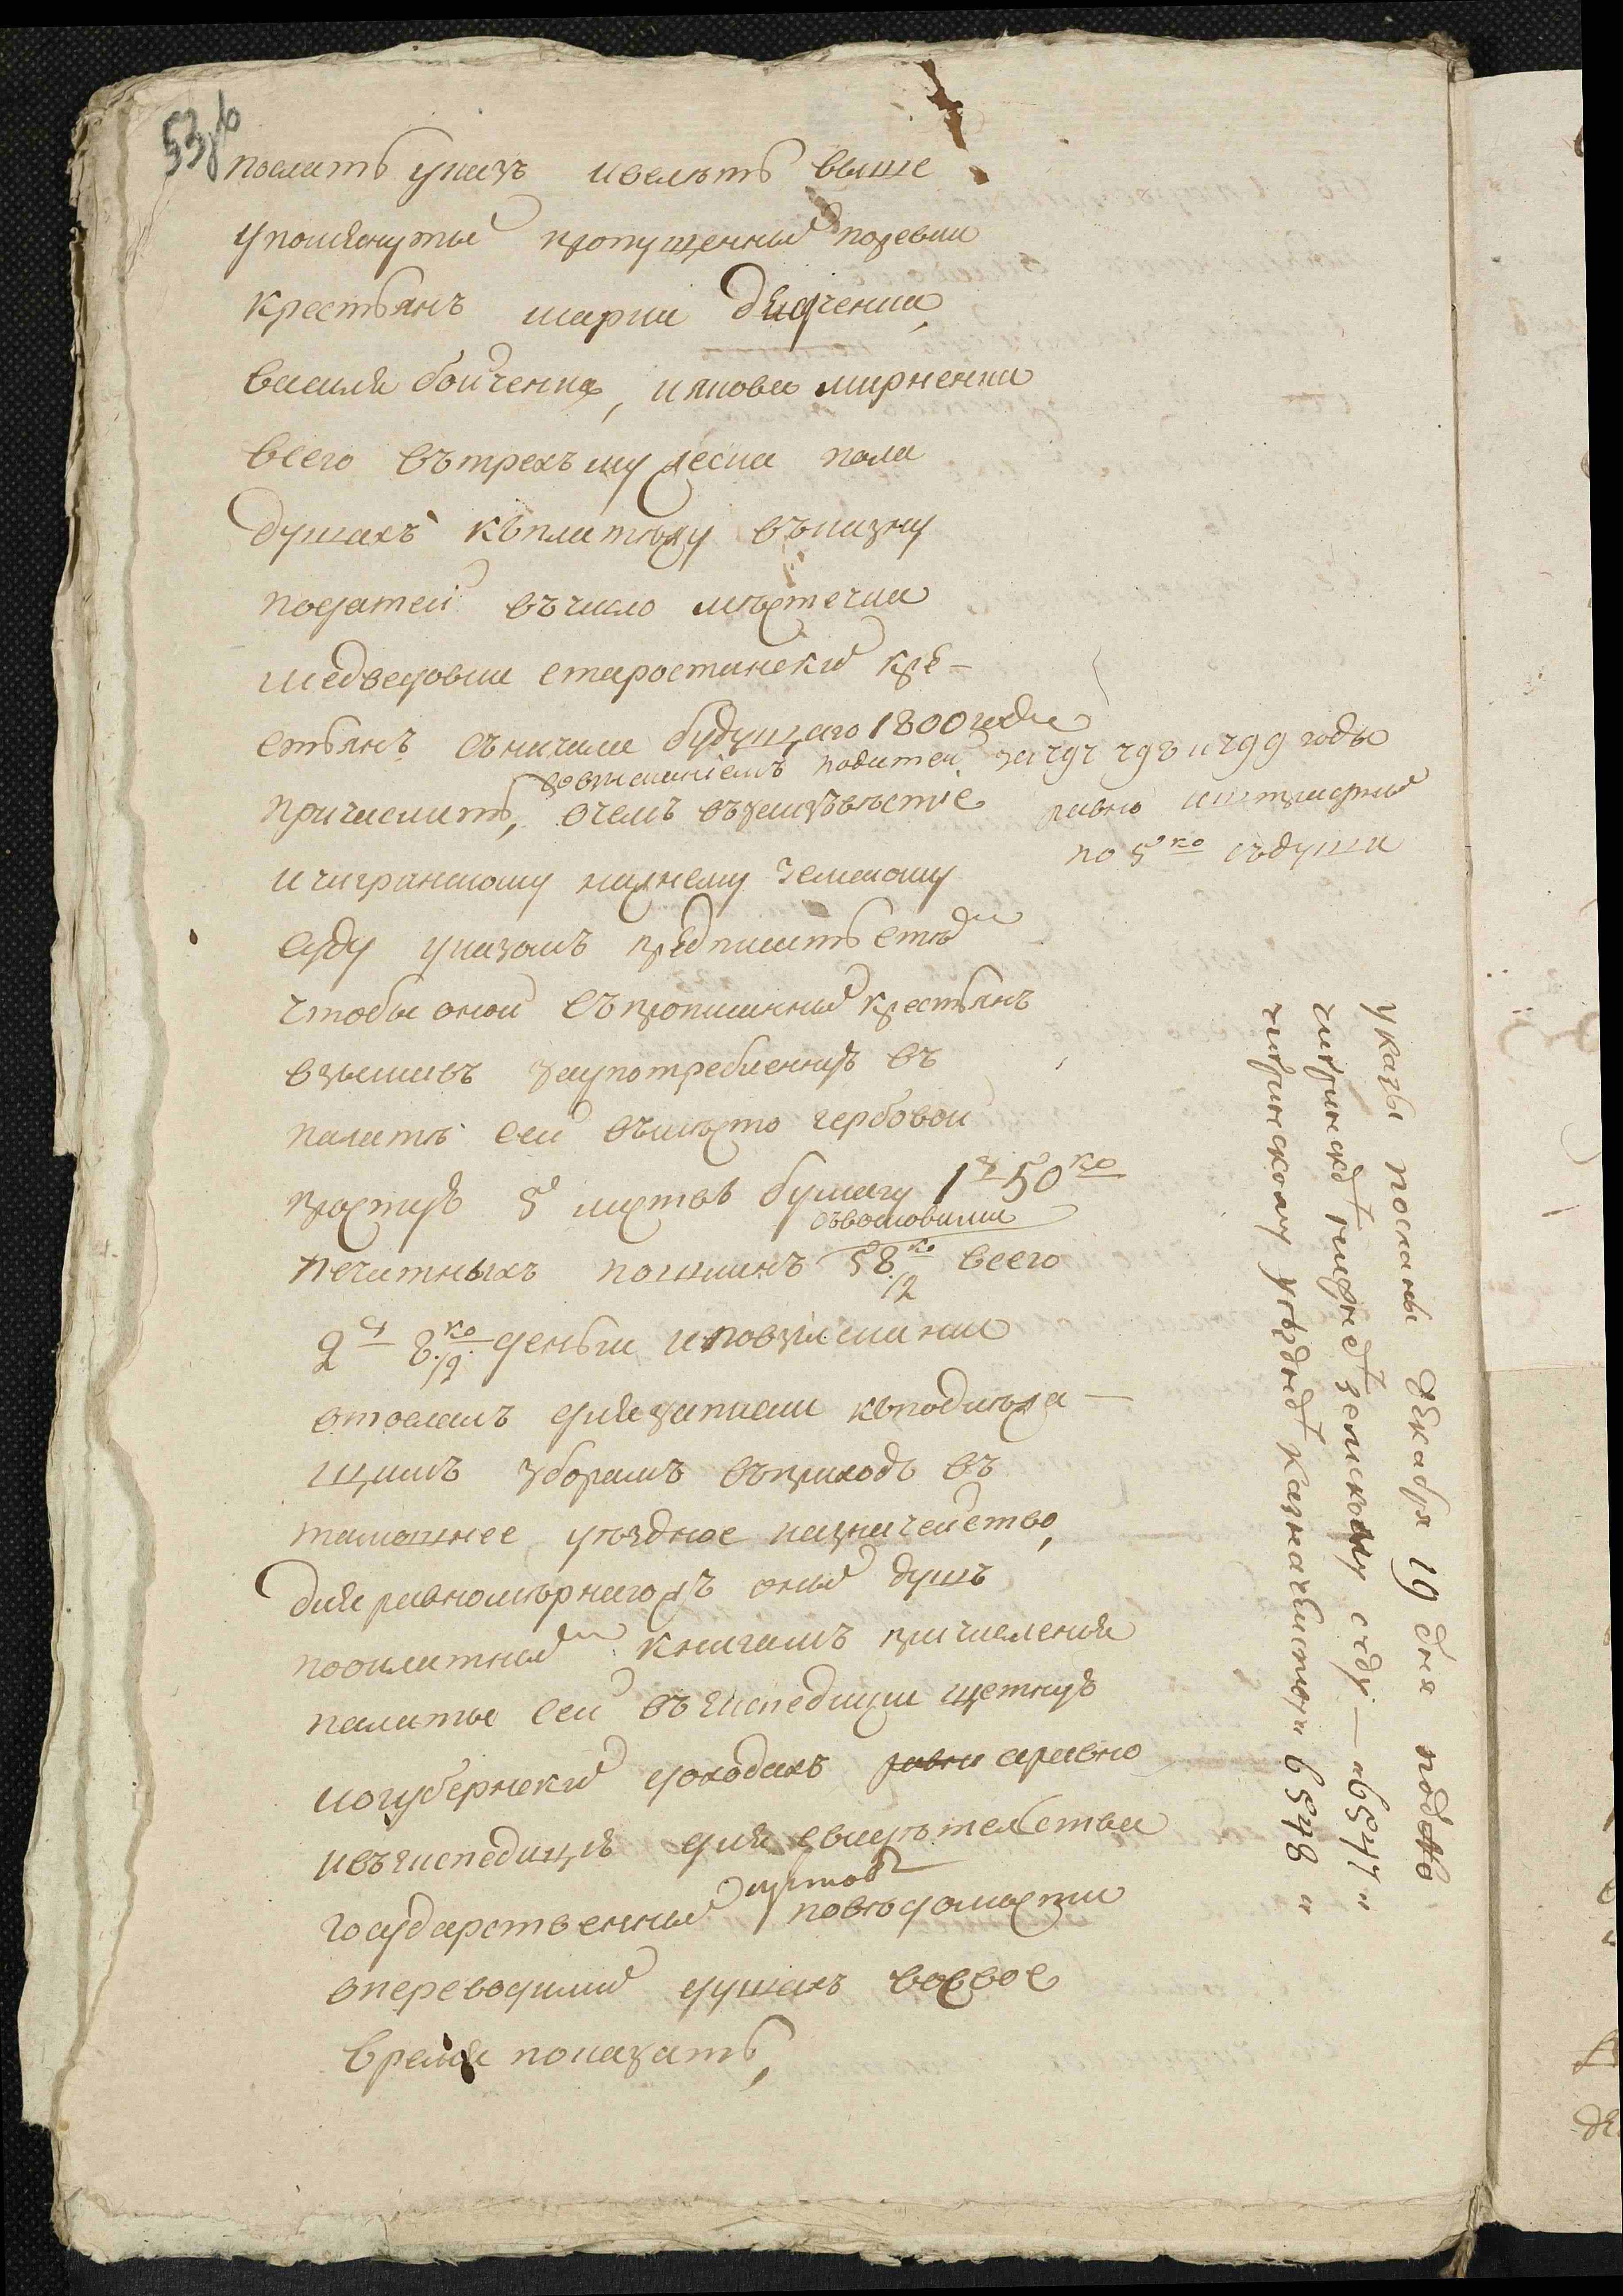 53об
послать указъ и велѣть выше
упомянутыхъ пропущенныхъ по ревизи
крестьянъ марка дяченка,
василя бойченка, и якова мирненка
всего въ трехъ мужеска пола
душахъ къ платежу въ казну
податей въ число мѣстечка
медведовки старостинскихъ кре-
стьянъ съ начала будущаго 1800 года
со взысканіемъ податей за 797 798 и 799 годы
причислить, о чемъ въ ея извѣстіе
равно и штрафныхъ
по 5 ко съ души
и чигринскому нижнему земскому
суду указомъ предписать съ тѣмъ
чтобы оной съ прописанныхъ крестьянъ
взыскавъ за употребленную въ
палатѣ сей вмѣсто гербовой
простую 5 листовъ бумагу 1 ру 50 ко
съ восковыми
печатныхъ пошлинъ 58 ко 1/2 всего
2 ру 8 ко 1/2 деньги и по взысканіи
отослалъ для записки къ подлежа-
щимъ зборамъ въ приходъ въ
тамошнее уѣздное казначейство,
для равномѣрнаго жъ оныхъ душъ
по окладнымъ книгамъ причисленія
палаты сей въ экспедиціи щетную
и о губернскихъ доходахъ равно а равно
и въ экспедицію для свидѣтельства
щетовъ
государственныхъ по вѣдомости
о переводимыхъ душахъ во свое
время показать,
указы посланы декабря 19 дня подъ №
чигринскому нижнему земскому суду — „6547„
чигринскому уѣздному казначейству „6548„